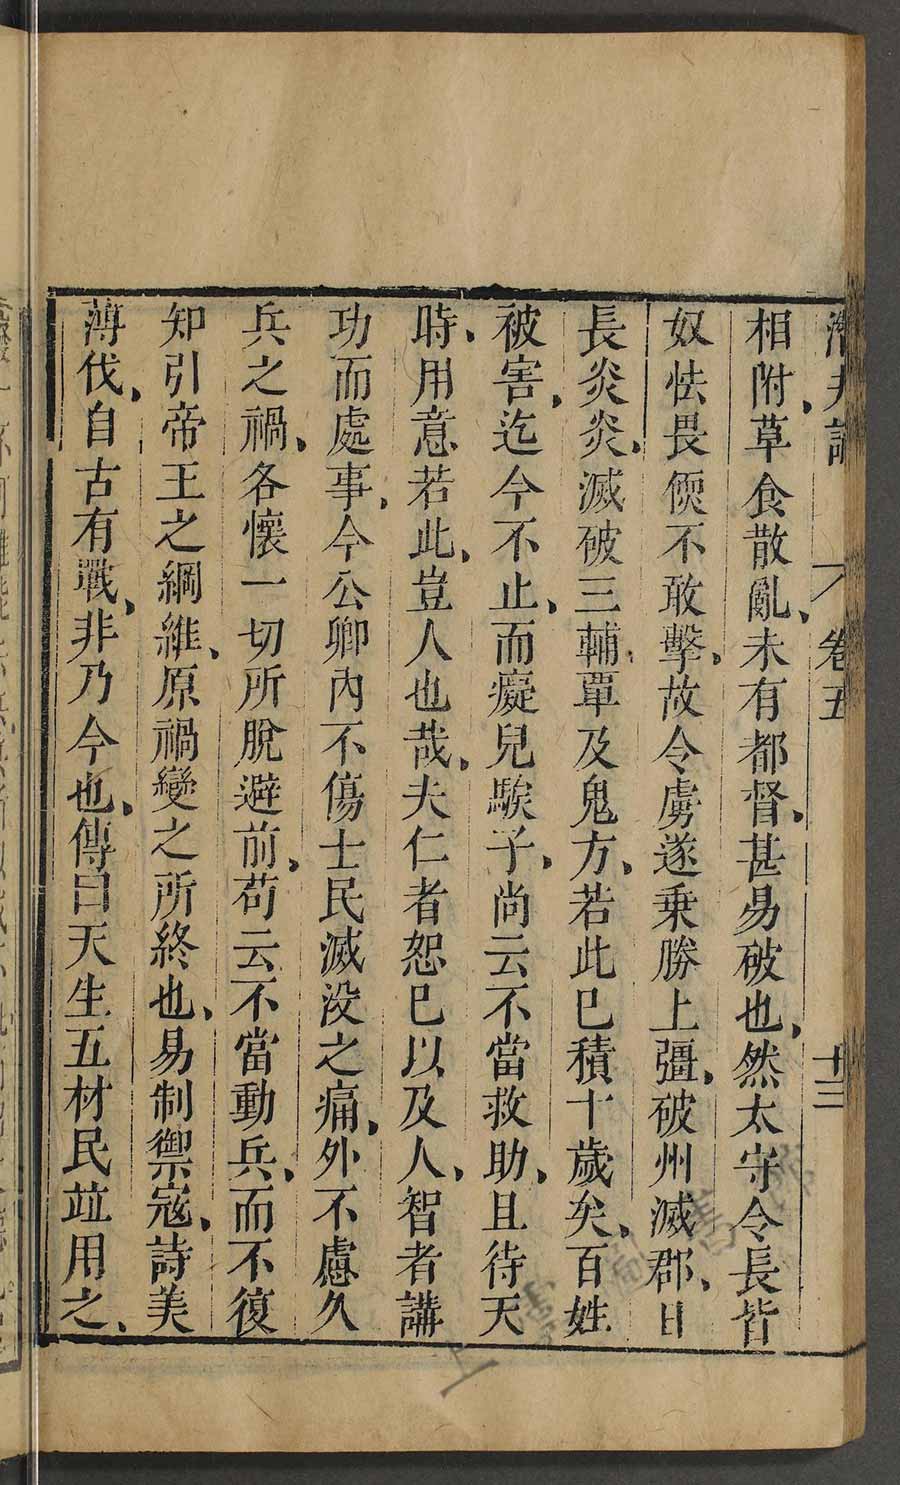 潛夫論 卷五 十三
相附、草食散亂、未有都督、甚易破也、然太守令長皆
奴怯畏偄不敢擊、故令虜遂乗勝上彊、破州滅郡、日
長炎炎、滅破三輔、覃及鬼方、若此已積十歲矣、百姓
被害、迄今不止、而癡兒騃子、尚云不當救助、且待天
時、用意若此、豈人也哉、夫仁者恕己以及人、智者講
功而處事、今公卿內不傷士民滅没之痛、外不慮久
兵之禍、各懷一切所脫避前、苟云不當動兵、而不復
知引帝王之綱維、原禍變之所終也、易制禦寇、詩美
薄伐、自古有戰、非乃今也、傳曰天生五材民竝用之、